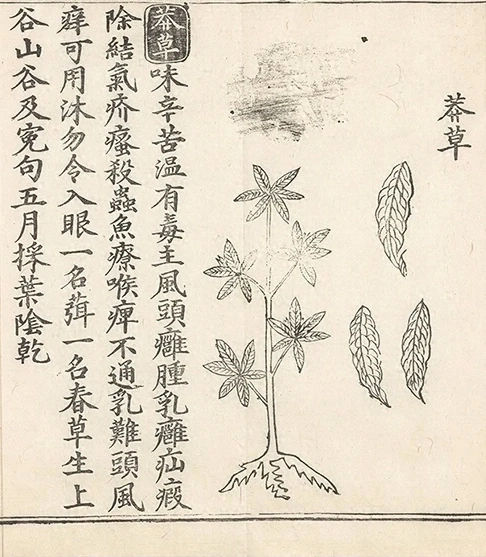 莽草
莽草味辛苦温有毒主風頭癰腫乳癰疝瘕
除結氣疥瘙殺蟲魚療喉痺不通乳難頭風
癢可用沐勿令入眼一名葞一名春草生上
谷山谷及寃句五月採葉陰乾